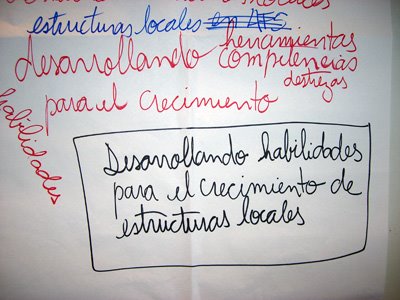 estructuras locales en AFS
herramientas
desarrollando competencias
destrezas
para el crecimiento
habilidades
Desarrollando habilidades
para el crecimiento de
estructuras locales